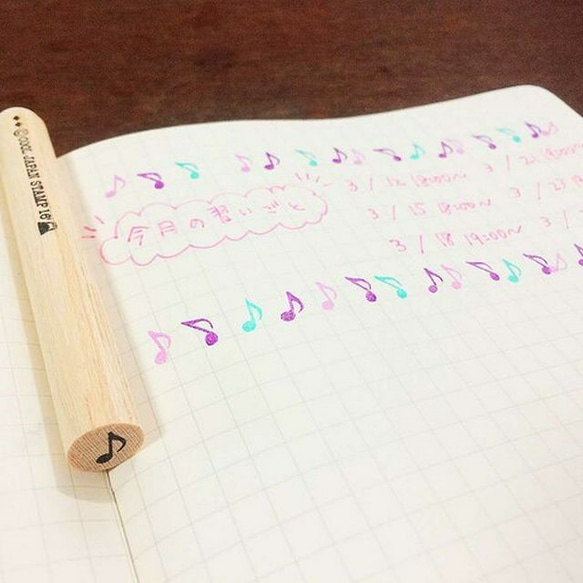 ©COOL JAPAN STAMP 16
今月の習いごと
3/12 18:00~
3/21 19:00~
3/15 18:00~
3/23
3/18 19:00~
3/